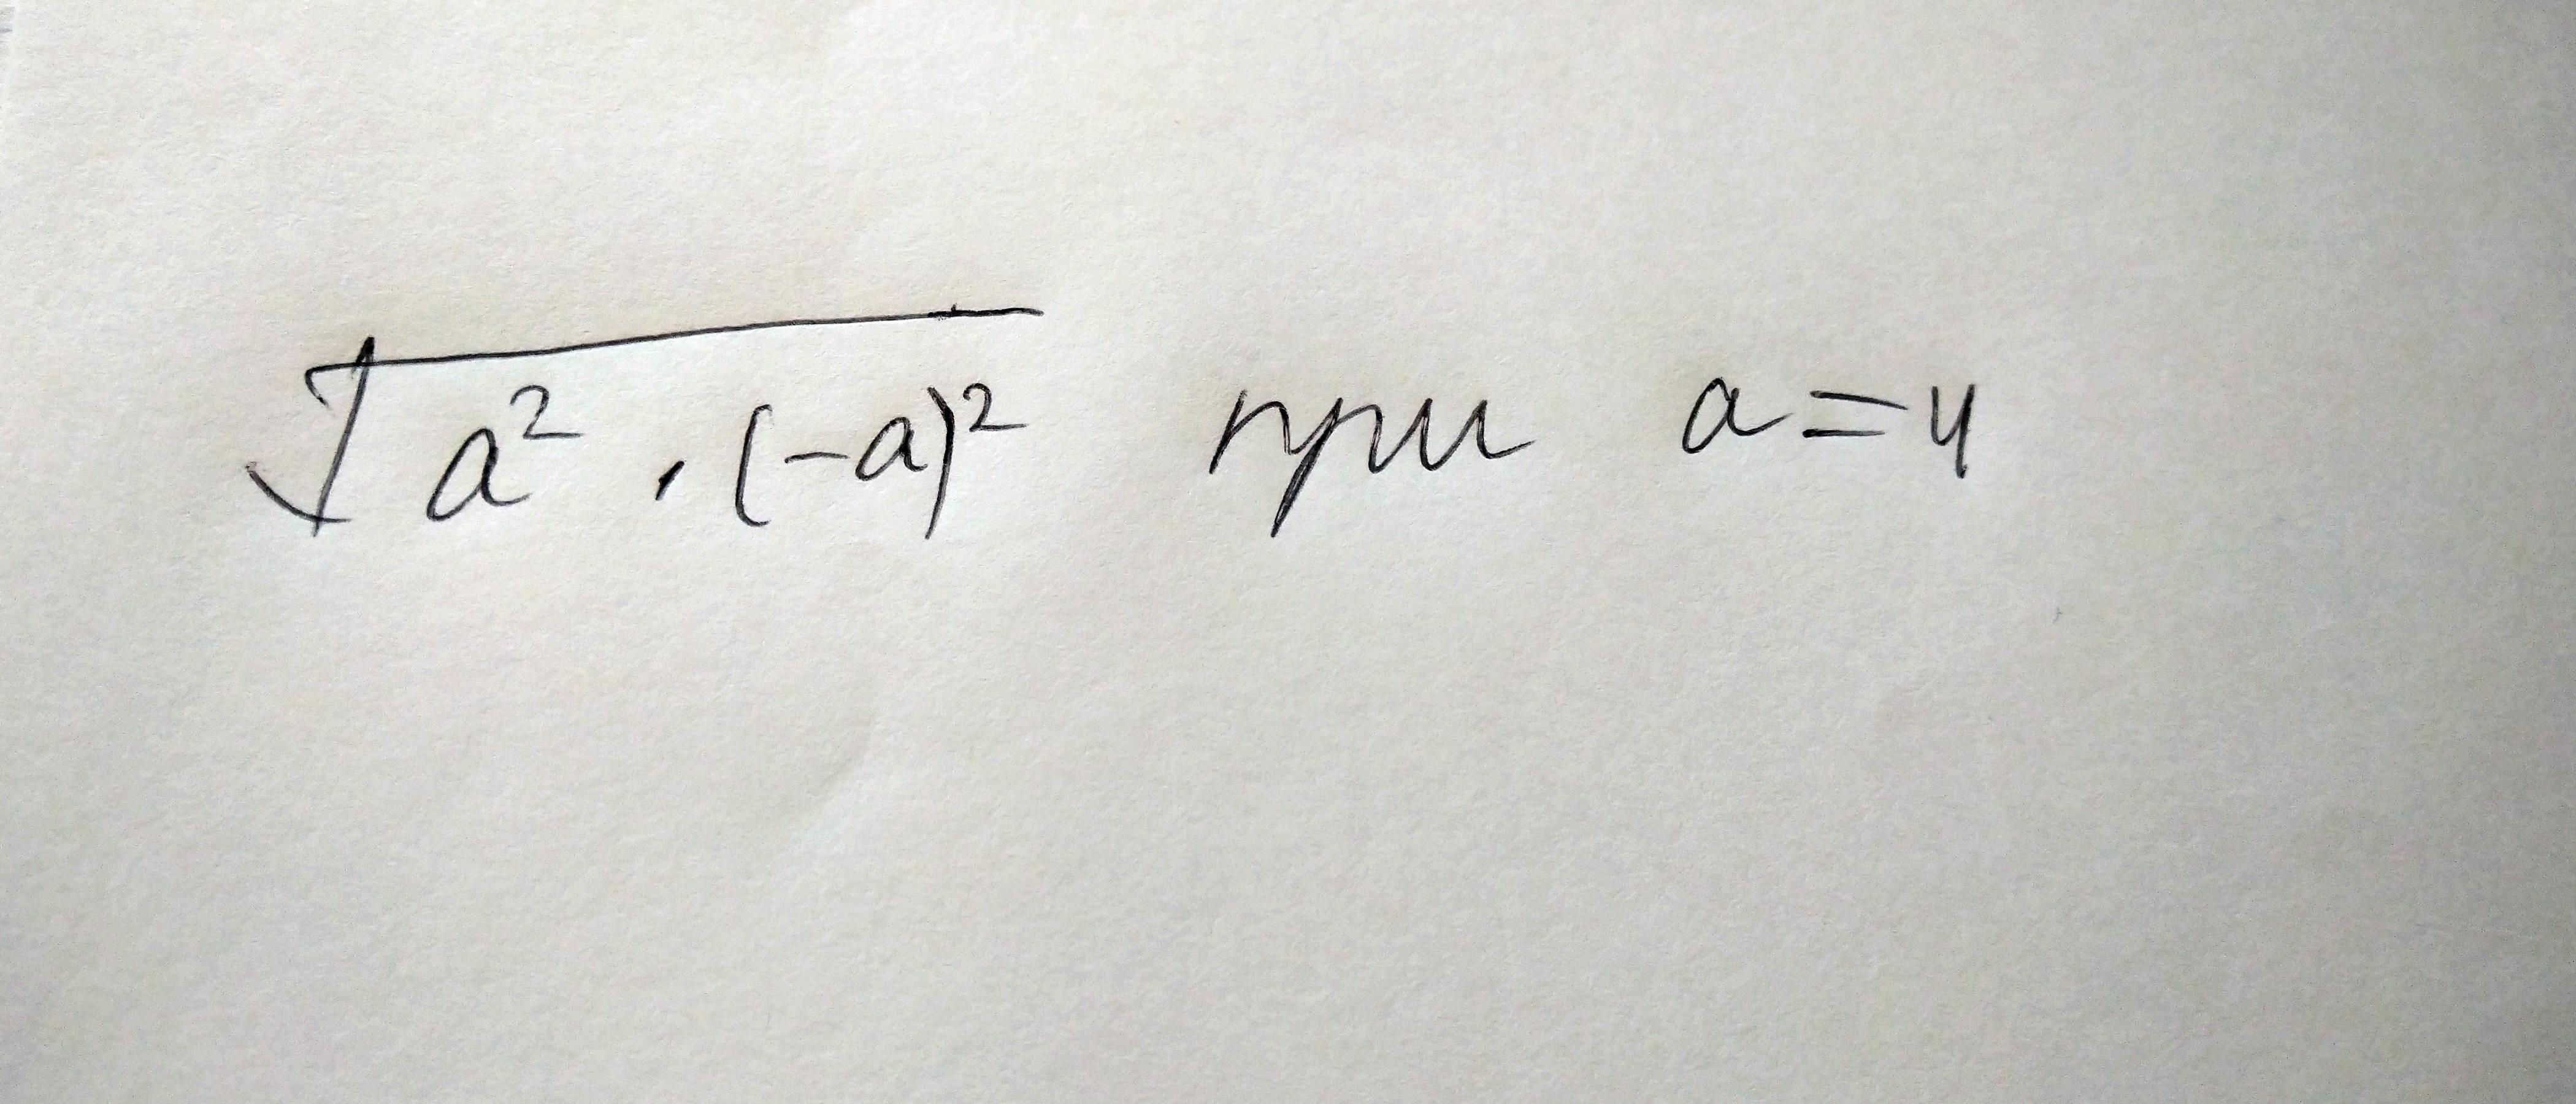 √a² · (-a)² при a = 4